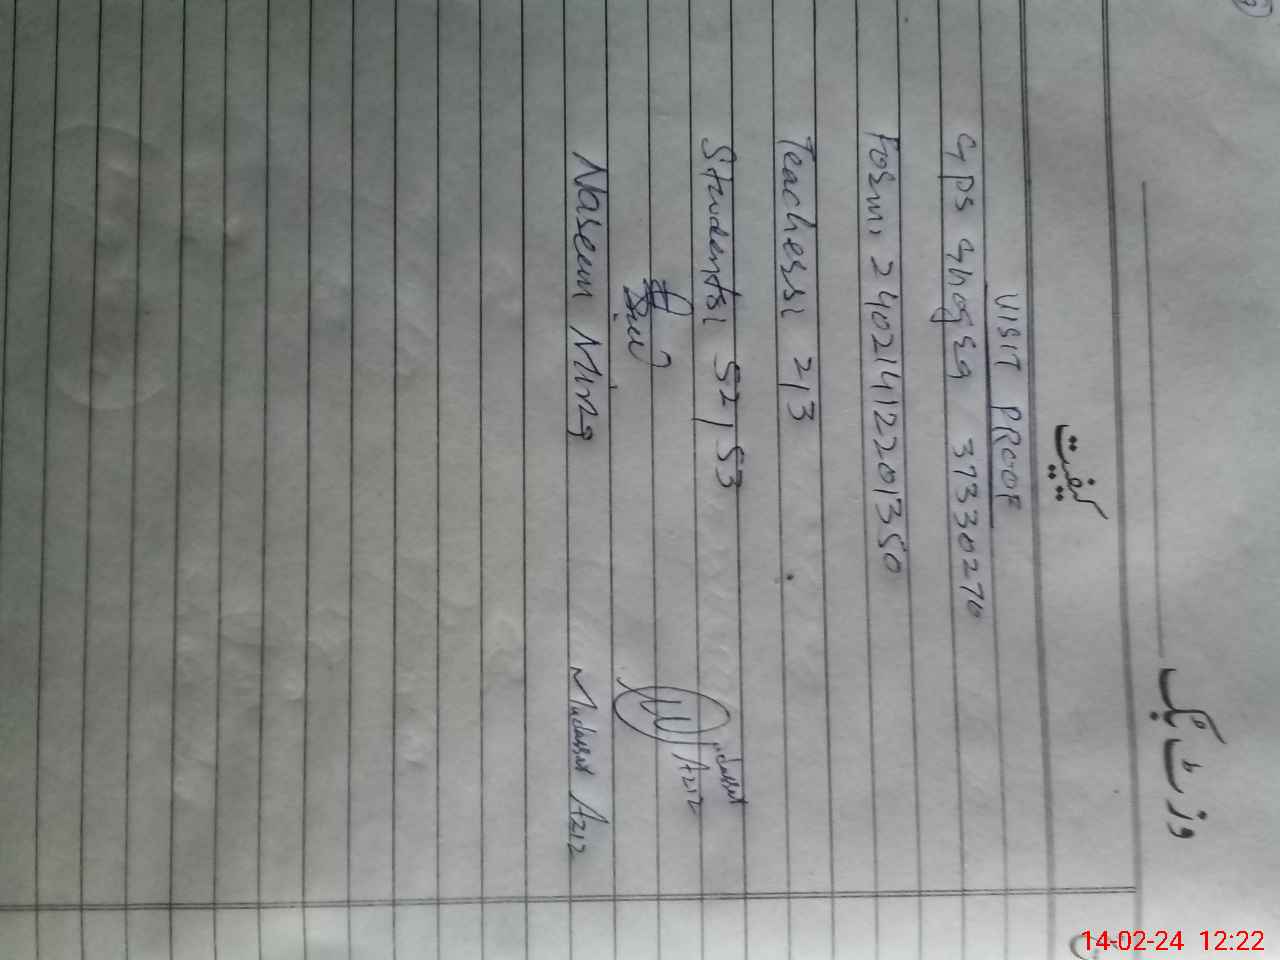 وزٹ بک
کیفیت
VISIT PROOF
GPS Ghogra / 37330270
Form: 240214122201350
Teachers: 2/3
Students: 52/53
Mudassar
Aziz
Naseem Mirza Mudassar Aziz
14-02-24 12:22